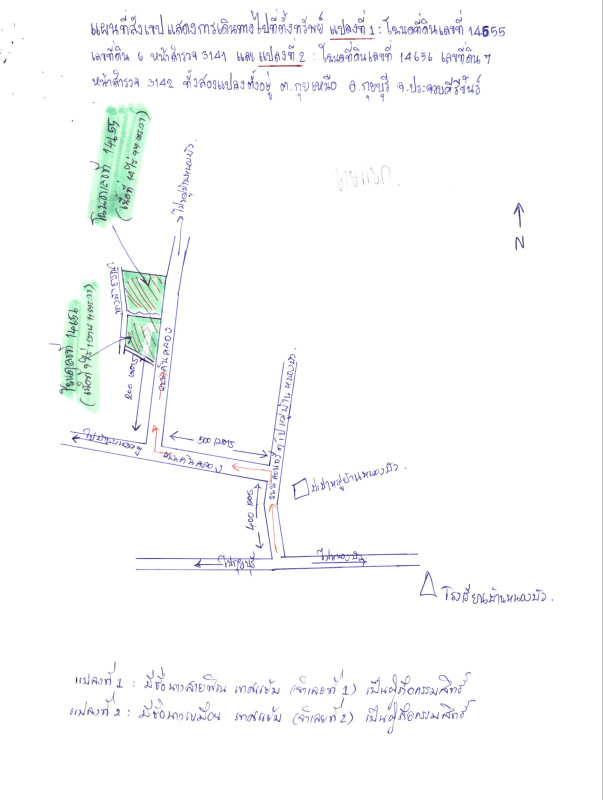 แผนที่สังเขป แสดงการเดินทางไปที่ตั้งทรัพย์ แปลงที่ 1 : โฉนดที่ดินเลขที่ 14655
เลขที่ดิน 6 หน้าสำรวจ 3141 และ แปลงที่ 2 : โฉนดที่ดินเลขที่ 14656 เลขที่ดิน 7
หน้าสำรวจ 3142 ทั้งสองแปลงตั้งอยู่ ต.กุยเหนือ อ.กุยบุรี จ.ประจวบคีรีขันธ์
โฉนดเลขที่ 14655
ไปหมู่บ้านหนองบัว
N
โฉนดเลขที่ 14656
ถนนคันคลอง
500 เมตร
ถนนคันคลอง
400 เมตร
ป่าช้าหมู่บ้านหนองบัว
ไปกุยบุรี
โรงเรียนบ้านหนองบัว
แปลงที่ 1 : มีชื่อนางสายพิณ เทศแย้ม (จำเลยที่ 1) เป็นผู้ถือกรรมสิทธิ์
แปลงที่ 2 : มีชื่อนางเหมือน เทศแย้ม (จำเลยที่ 2) เป็นผู้ถือกรรมสิทธิ์